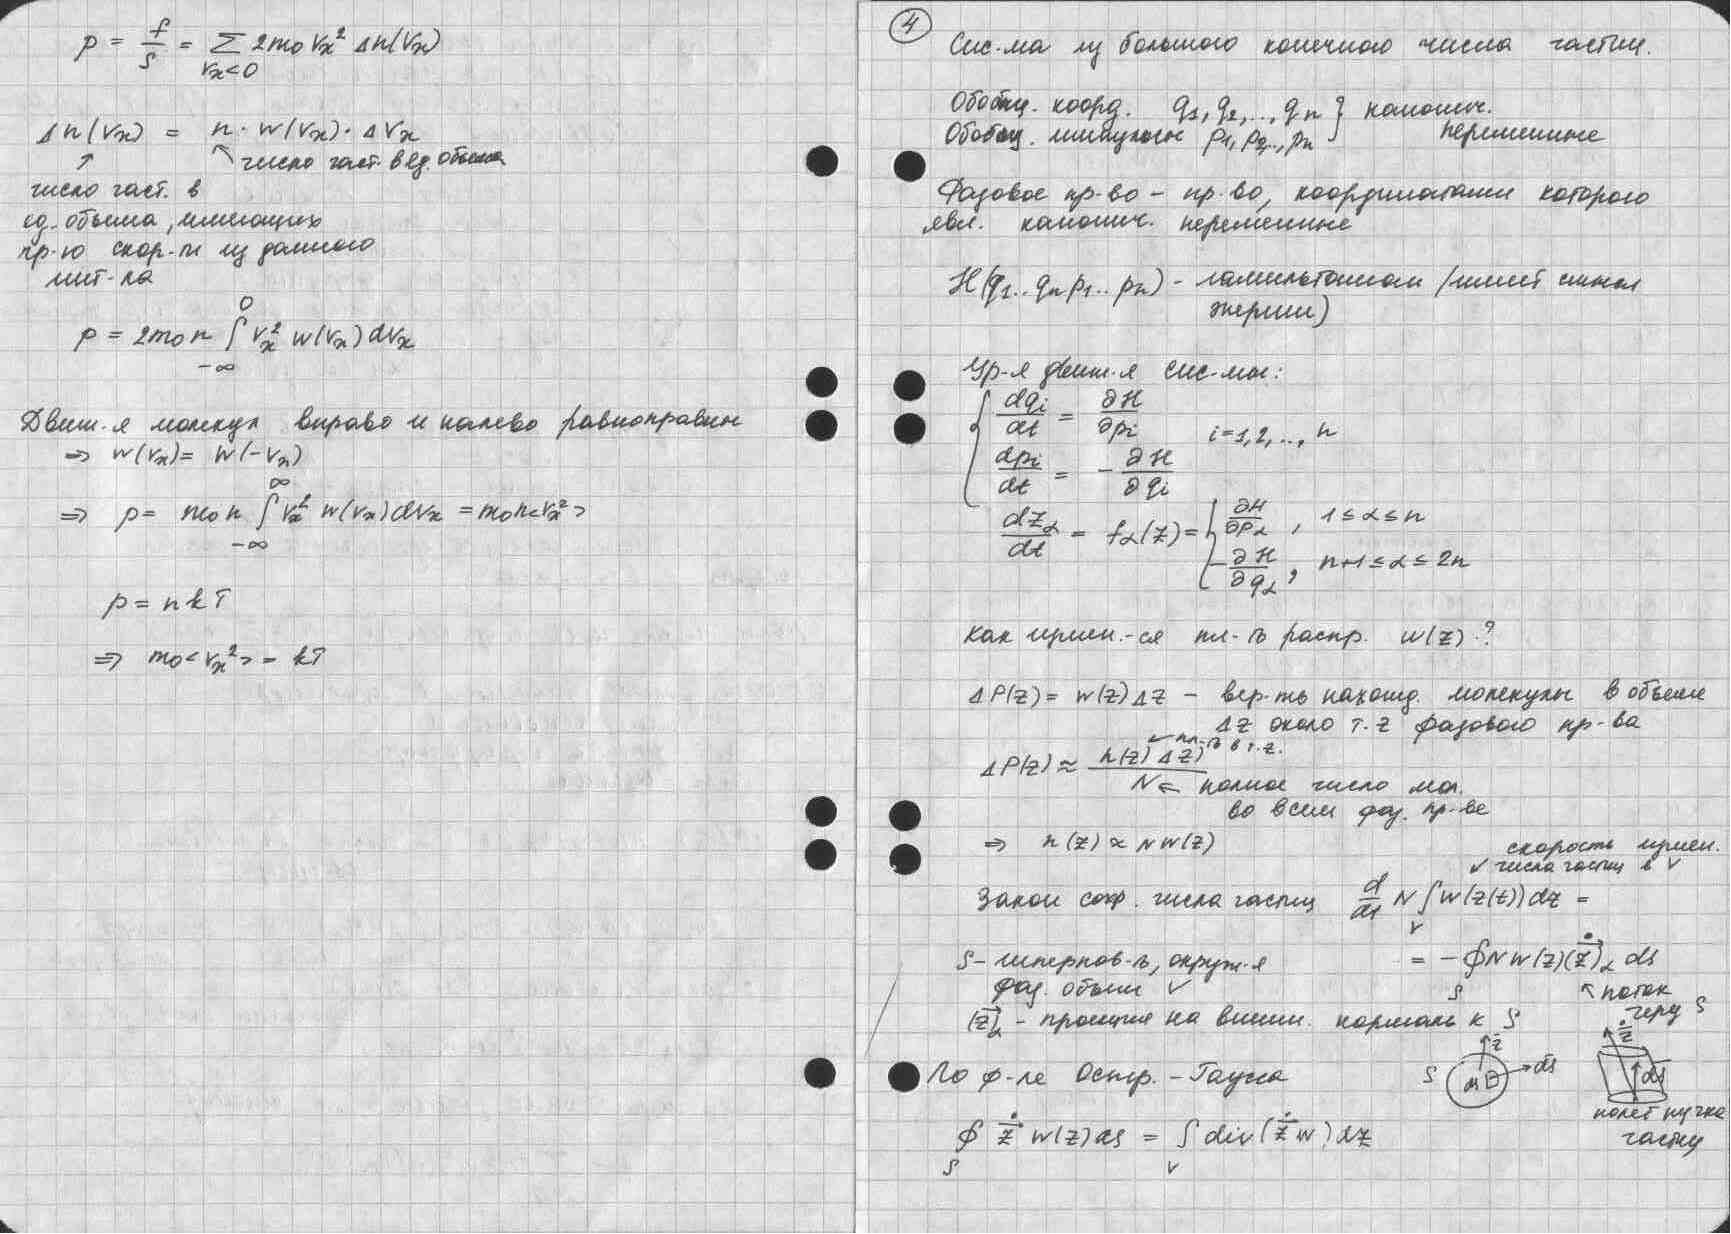 p = f/S = Σ 2m₀vₓ² Δn(vₓ)
vₓ<0
Δn(vₓ) = n · w(vₓ) · Δvₓ
число част. в ед. объема
число част. в
ед. объема, имеющих
пр-ю скор-ти из данного
инт-ла
p = 2m₀n ∫₋∞⁰ vₓ² w(vₓ) dvₓ
Движ-я молекул вправо и налево равноправны
⇒ w(vₓ) = w(-vₓ)
⇒ p = m₀n ∫₋∞^∞ vₓ² w(vₓ) dvₓ = m₀n<vₓ²>
p = nkT
⇒ m₀<vₓ²> = kT
4
Сис-ма из большого конечного числа частиц.
Обобщ. коорд. q₁, q₂, .., qn } канонич.
Обобщ. импульсы p₁, p₂.., pn переменные
Фазовое пр-во – пр-во, координатами которого
явл. канонич. переменные
H(q₁..qn p₁..pn) – гамильтониан (имеет смысл
энергии)
Ур-я движ-я сис-мы:
dqi/dt = ∂H/∂pi
i=1,2,..,n
dpi/dt = -∂H/∂qi
dzα/dt = fα(z) = { ∂H/∂pα , 1≤α≤n
-∂H/∂qα , n+1≤α≤2n
Как измен.-ся пл-ть распр. w(z)?
ΔP(z) = w(z)Δz – вер-ть нахожд. молекулы в объеме
Δz около т. z фазового пр-ва
пл-ть в т. z.
ΔP(z) ≈ n(z)Δz / N ← полное число мол.
во всем фаз. пр-ве
⇒ n(z) ∝ Nw(z)
скорость измен.
числа частиц в V
Закон сохр. числа частиц d/dt N ∫_V w(z(t))dz =
S – гиперпов-ть, окруж-я = -∮_S N w(z)(ż)α ds
фаз. объем V
поток
через S
(ż)α – проекция на внешн. нормаль к S
ż
S ds
ż
ds
По ф-ле Остр.–Гаусса
полет пучка
частиц
∮_S ż w(z) ds = ∫_V div(ż w) dz